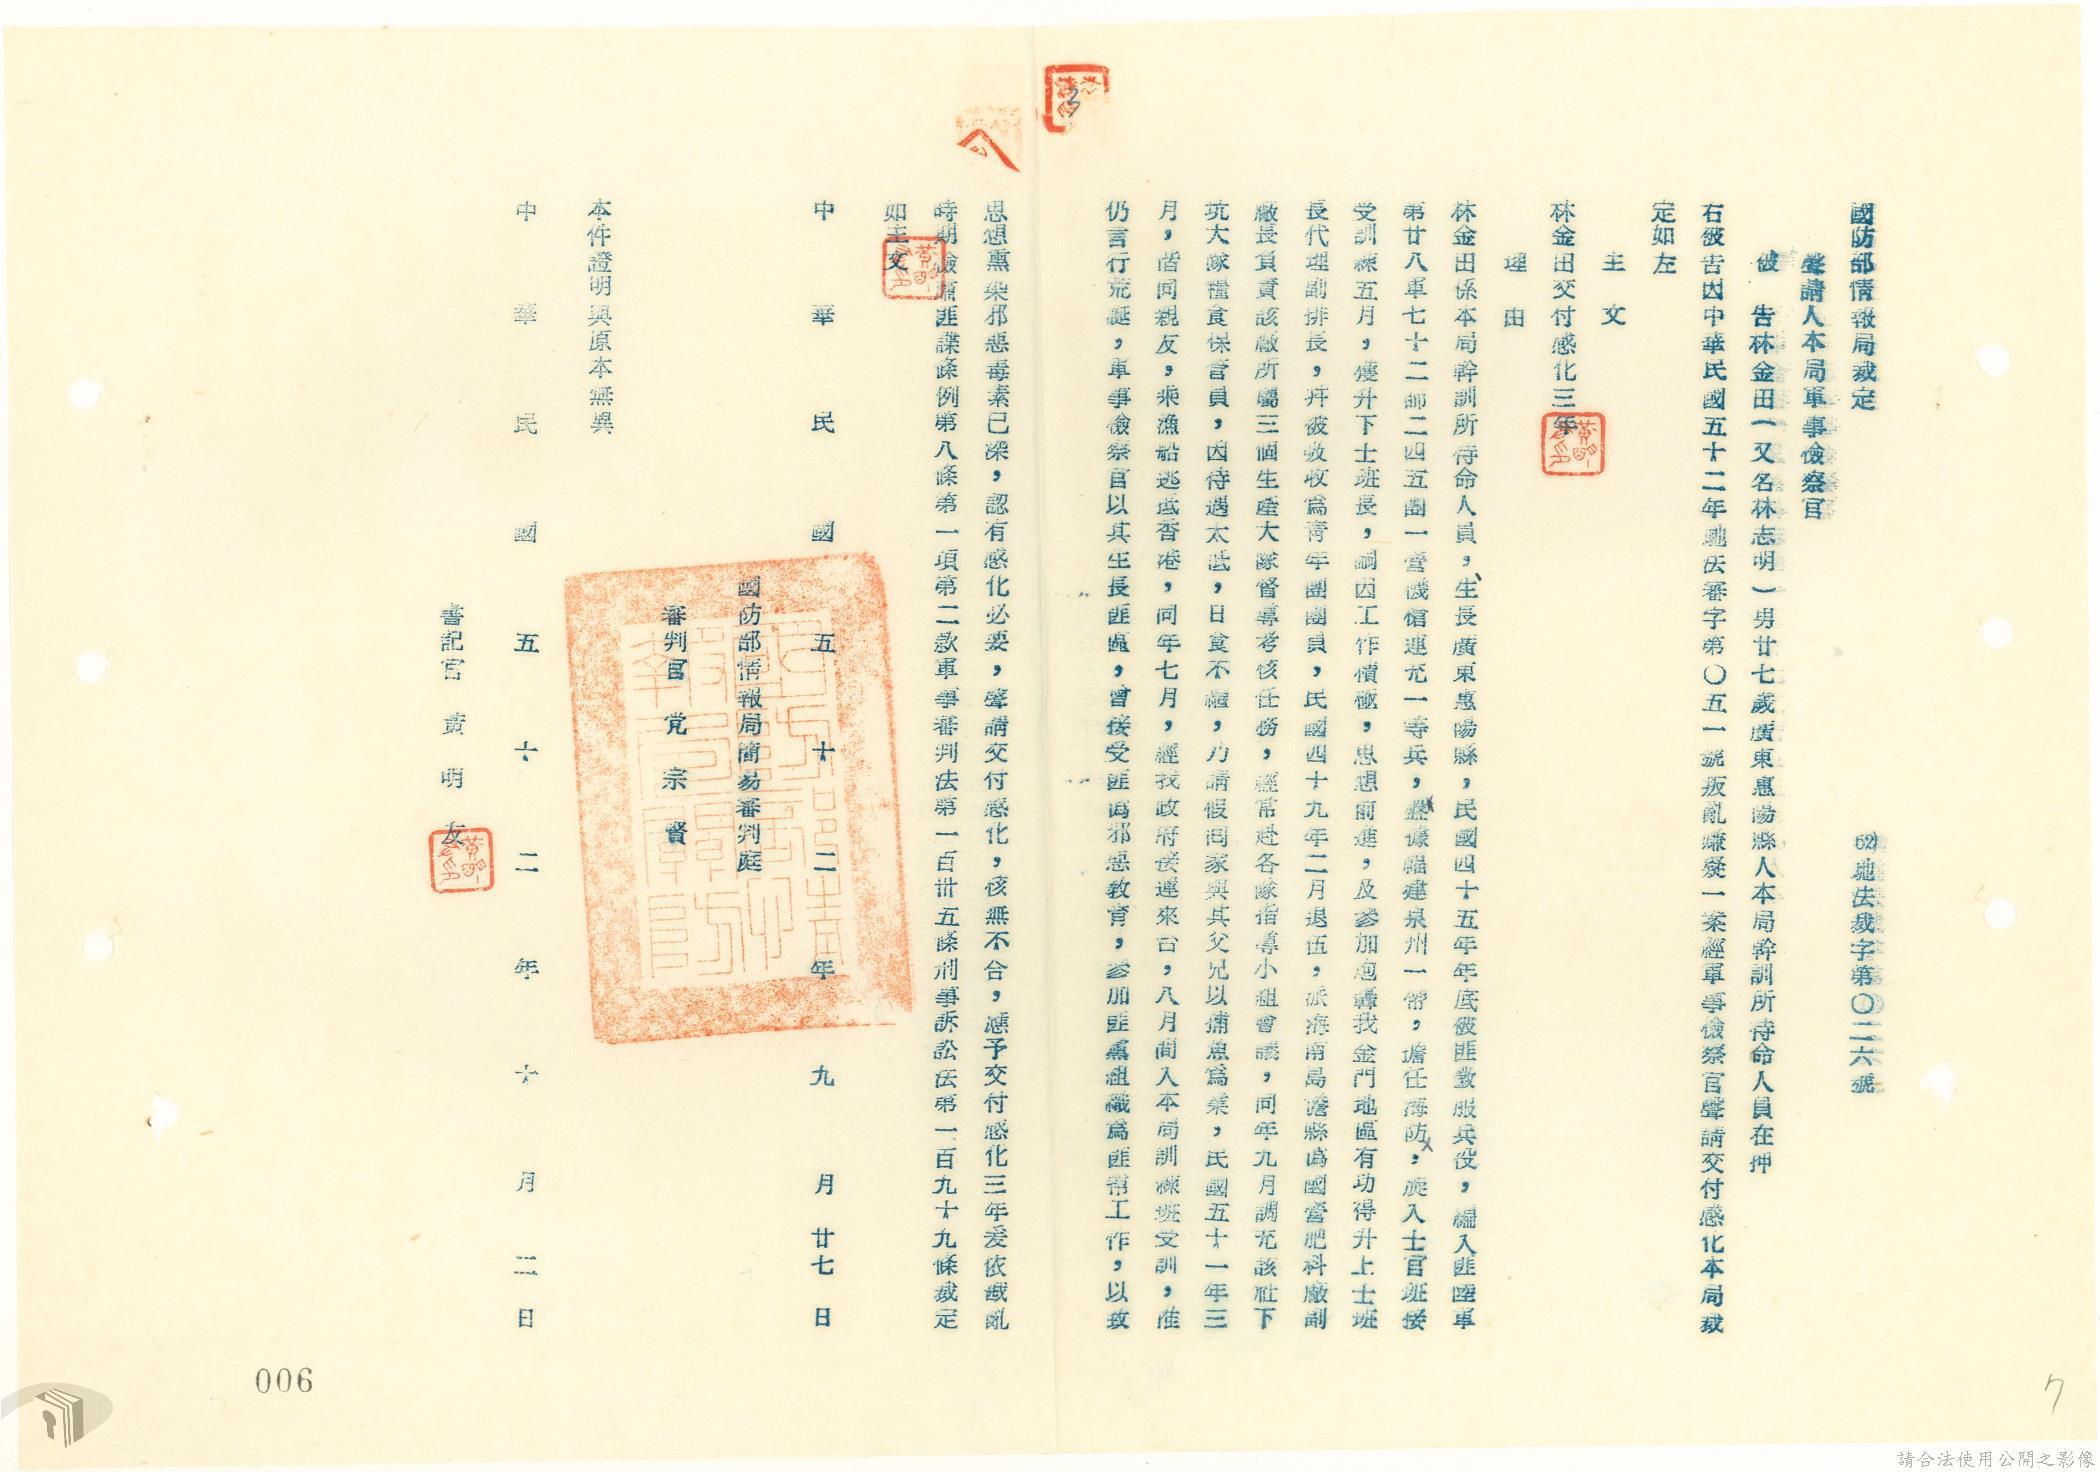 國防部情報局裁定
62馳法裁字第〇二六號
聲請人本局軍事檢察官
被　告林金田（又名林志明）男廿七歲廣東惠陽縣人本局幹訓所待命人員在押
右被告因中華民國五十二年馳法審字第〇五一號叛亂嫌疑一案經軍事檢察官聲請交付感化本局裁
定如左
主　文
林金田交付感化三年
理　由
林金田係本局幹訓所待命人員，生長廣東惠陽縣，民國四十五年年底被匪徵服兵役，編入匪陸軍
第廿八軍七十二師二四五團一營機槍連充一等兵，整備福建泉州一帶，擔任海防，旋入士官班接
受訓練五月，獲升下士班長，嗣因工作積極，思想前進，及參加炮轟我金門地區有功得升上士班
長代理副排長，并被救收為青年團團員，民國四十九年二月退伍，派海南島儋縣偽國營肥料廠副
廠長負責該廠所屬三個生產大隊督導考核任務，經常赴各隊指導小組會議，同年九月調充該社下
坑大隊糧食保管員，因待遇太低，日食不繼，乃請假回家與其父兄以捕魚為業，民國五十一年三
月，偕同親友，乘漁船逃抵香港，同年七月，經我政府接運來台，八月間入本局訓練班受訓，惟
仍言行荒誕，軍事檢察官以其生長匪區，曾接受匪偽邪惡教育，參加匪黨組織為匪幫工作，以致
思想熏染邪惡毒素已深，認有感化必要，聲請交付感化，核無不合，應予交付感化三年爰依戡亂
時期檢肅匪諜條例第八條第一項第二款軍事審判法第一百卅五條刑事訴訟法第一百九十九條裁定
如主文
中華民國五十二年九月廿七日
國防部情報局簡易審判庭
審判官　党宗賢
本件證明與原本無異
中華民國五十二年十月二日
書記官　黃明友
006
7
請合法使用公開之影像